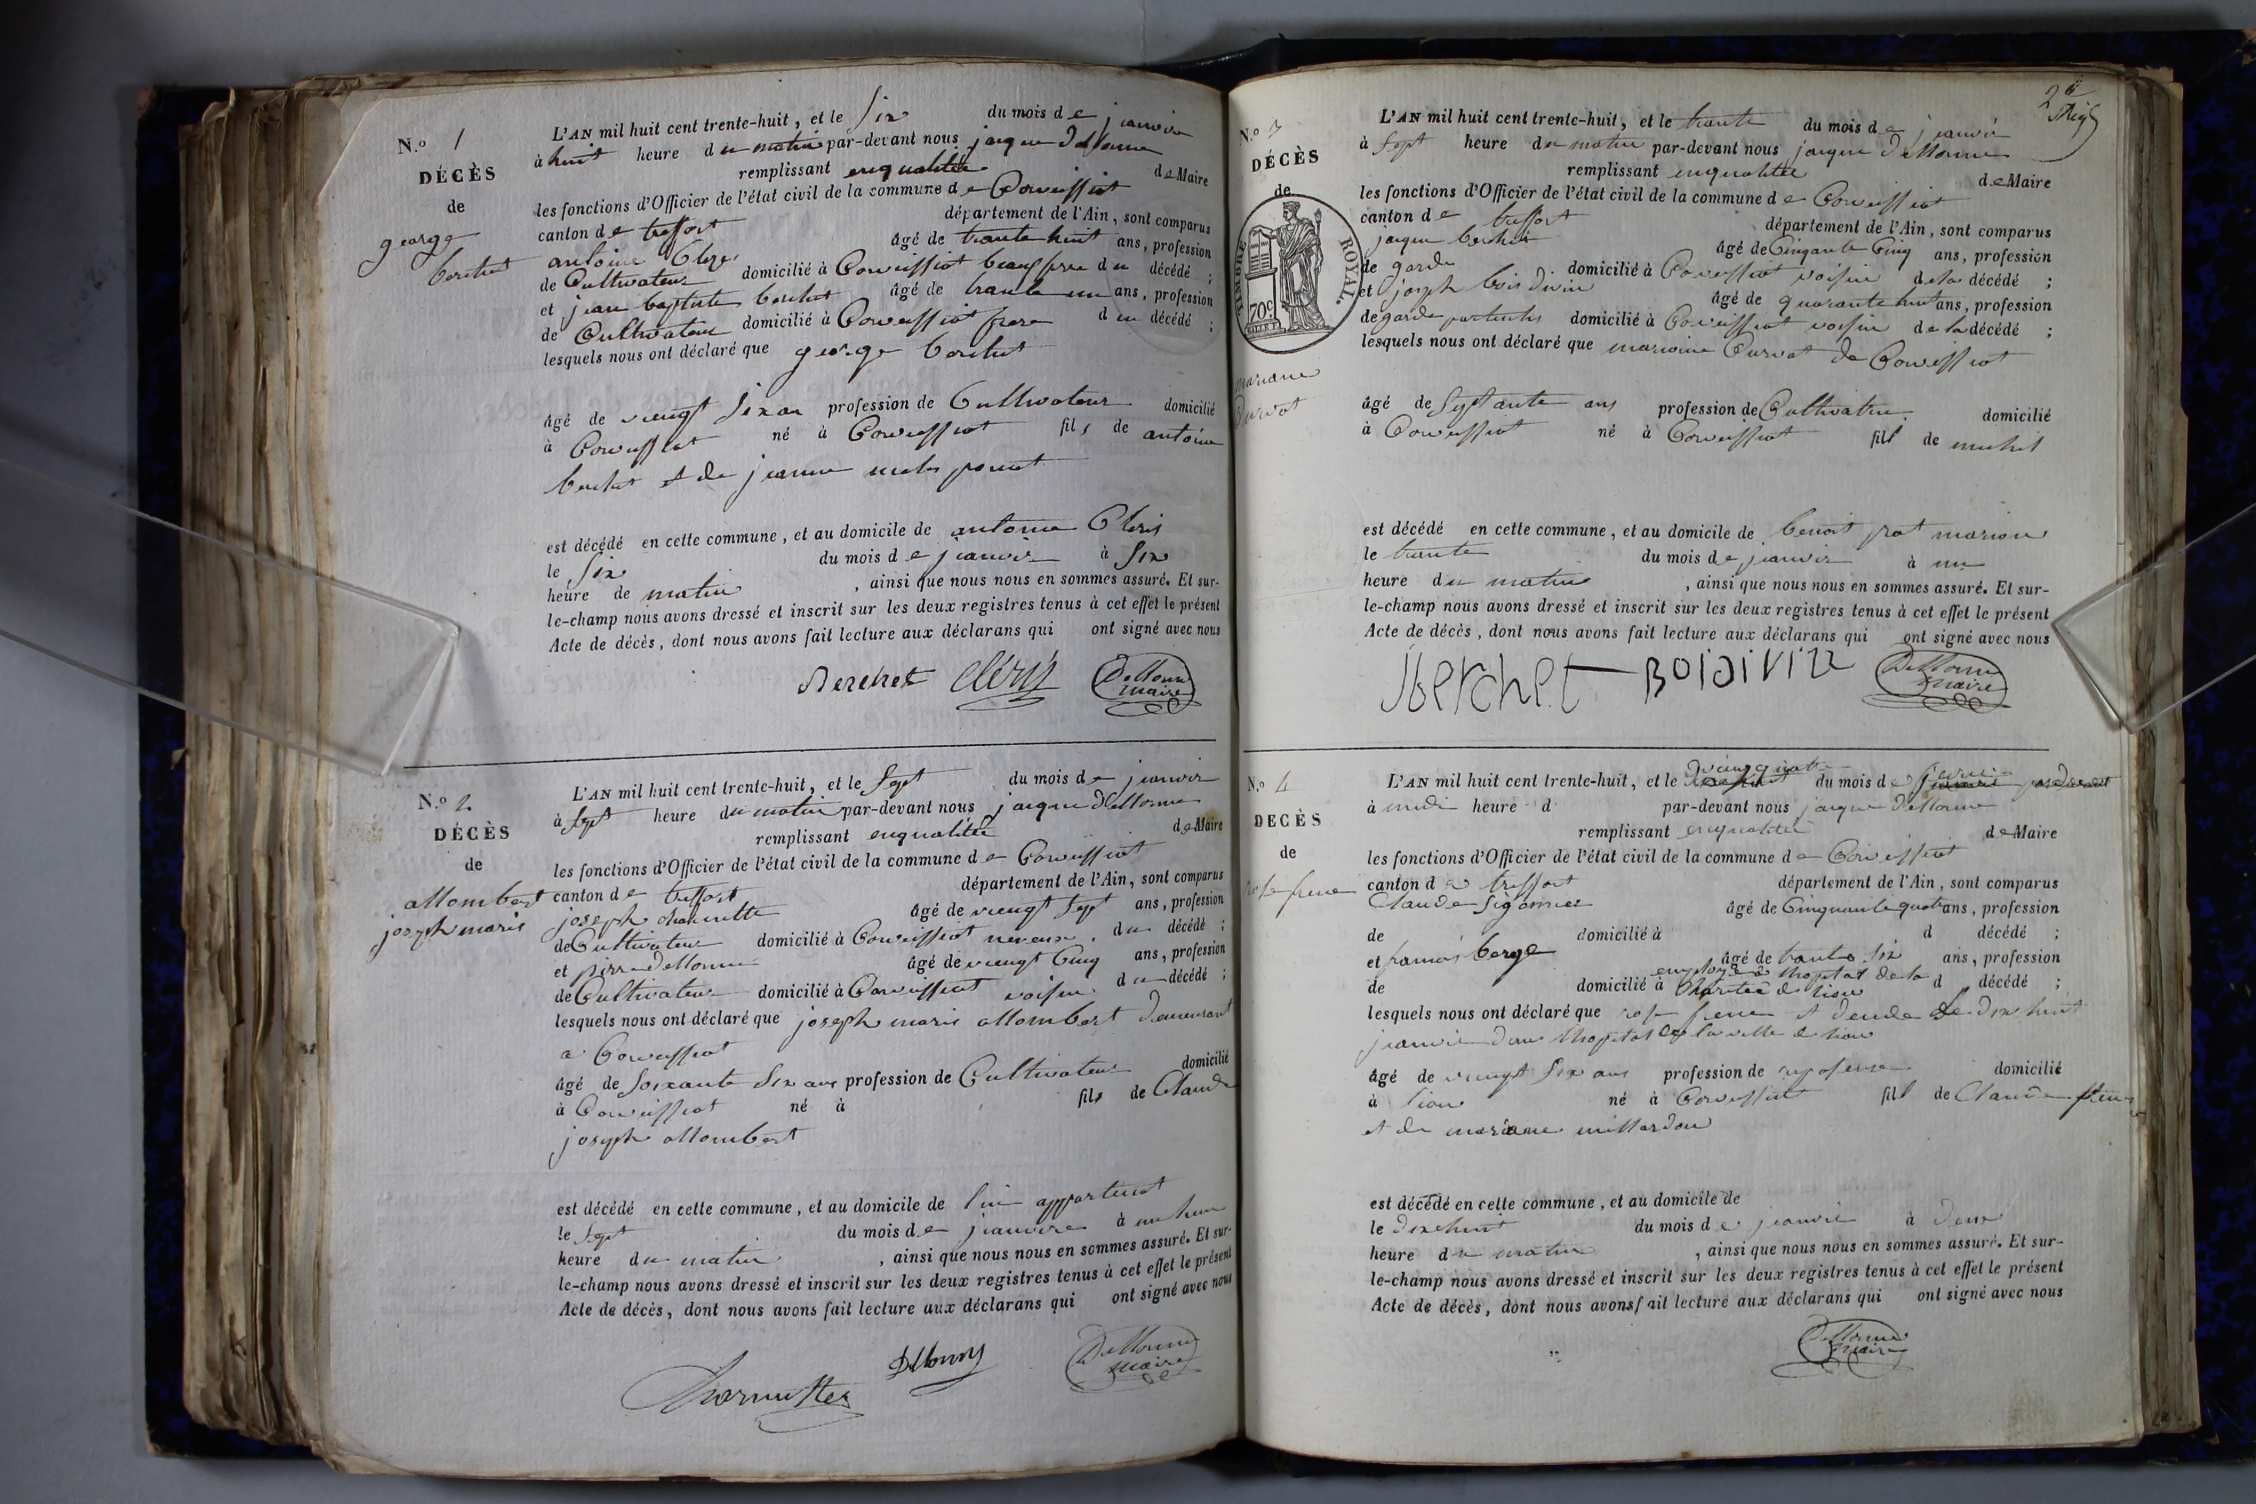 N.o 1
DÉCÈS
de
george
berchet
L'AN mil huit cent trente-huit, et le six du mois de janvier
à huit heure du matin par-devant nous jaque dellorme
remplissant enqualitée de Maire
les fonctions d'Officier de l'état civil de la commune de Coveissiat
canton de treffort département de l'Ain, sont comparus
antoine Cleri âgé de trante huit ans, profession
de Cultivateur domicilié à Coveissiat beauffrere du décédé ;
et jean baptiste berchet âgé de trante un ans, profession
de Cultivateur domicilié à Coveissiat frere du décédé ;
lesquels nous ont déclaré que george berchet
âgé de vieugt six an profession de Cultivateur domicilié
à Coveissiat né à Coveissiat fils de antoine
berchet et de jeanne
est décédé en cette commune, et au domicile de antoine Cleris
le six du mois de janvier à six
heure de matin , ainsi que nous nous en sommes assuré. Et sur-
le-champ nous avons dressé et inscrit sur les deux registres tenus à cet effet le présent
Acte de décès, dont nous avons fait lecture aux déclarans qui ont signé avec nous
Berchet Cléris Dellorme
maire
N.o 2
DÉCÈS
de
allombert
joseph marie
L'AN mil huit cent trente-huit, et le sept du mois de janvier
à sept heure du matin par-devant nous jaque dellorme
remplissant enqualitée de Maire
les fonctions d'Officier de l'état civil de la commune de Coveissiat
canton de treffort département de l'Ain, sont comparus
joseph charnette âgé de vieugt sept ans, profession
de Cultivateur domicilié à Coveissiat neveux du décédé ;
et pierre dellorme âgé de vieugt Cinq ans, profession
de Cultivateur domicilié à Coveissiat voisin du décédé ;
lesquels nous ont déclaré que joseph marie allombert demeurant
a Coveissiat
âgé de soixante six ans profession de Cultivateur domicilié
à Coveissiat né à fils de Claude
joseph allombert
est décédé en cette commune, et au domicile de lui appartenat
le sept du mois de janvier à un heure
heure du matin , ainsi que nous nous en sommes assuré. Et sur-
le-champ nous avons dressé et inscrit sur les deux registres tenus à cet effet le présent
Acte de décès, dont nous avons fait lecture aux déclarans qui ont signé avec nous
Dellorme
maire
N.o 3
DÉCÈS
de
TIMBRE ROYAL.
70c
mariane
Curvat
L'AN mil huit cent trente-huit, et le trante du mois de janvier
à sept heure du matin par-devant nous jaque dellorme
remplissant enqualitée de Maire
les fonctions d'Officier de l'état civil de la commune de Coveissiat
canton de treffort département de l'Ain, sont comparus
jaque berchet âgé de Cinqante Cinq ans, profession
de garde domicilié à Coveissiat voisin de la décédé ;
et joseph bois divin âgé de quarante huit ans, profession
de garde particulier domicilié à Coveissiat voisin de la décédé ;
lesquels nous ont déclaré que marianne Curvat de Coveissiat
âgé de septante ans profession de Cultivatrice domicilié
à Coveissiat né à Coveissiat fill de michel
est décédé en cette commune, et au domicile de benoit prat marion
le trante du mois de janvier à un
heure du matin , ainsi que nous nous en sommes assuré. Et sur-
le-champ nous avons dressé et inscrit sur les deux registres tenus à cet effet le présent
Acte de décès, dont nous avons fait lecture aux déclarans qui ont signé avec nous
Berchet Boidivin Dellorme
maire
N.o 4
DÉCÈS
de
L'AN mil huit cent trente-huit, et le du mois de
à midi heure d par-devant nous jaque dellorme
remplissant enqualitée de Maire
les fonctions d'Officier de l'état civil de la commune de Coveissiat
canton de treffort département de l'Ain, sont comparus
Claude âgé de Cinquante quatr ans, profession
de domicilié à d décédé ;
et berge âgé de trante six ans, profession
employé à lhopital de la
de domicilié à Charitée de lion d décédé ;
lesquels nous ont déclaré que et de dix huit
janvier dans lhopital de la ville de lion
âgé de vieugt six ans profession de domicilié
à lion né à Coveissiat fill de Claude
et de mariane millardon
est décédé en cette commune, et au domicile de
le dix huit du mois de janvier à deux
heure du matin , ainsi que nous nous en sommes assuré. Et sur-
le-champ nous avons dressé et inscrit sur les deux registres tenus à cet effet le présent
Acte de décès, dont nous avons fait lecture aux déclarans qui ont signé avec nous
Dellorme
maire